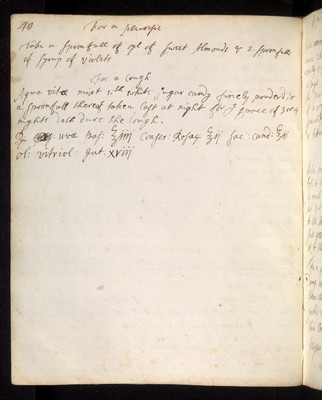 40 For a pleurisie
Take a spoonfull of oyl of sweet Almonds & 2 spoonfulls
of syrup of violets
For a Cough
Aqua vitæ mixt with white sugar candy finely powderd &
a spoonfull thereof taken last at night for ye space of 3 or 4
nights doth cure the Cough.
uvæ pas: ℥iiij Conser: Rosar ℥ij Sac: Cand: ℥ij
ol: vitriol: gut: xviij